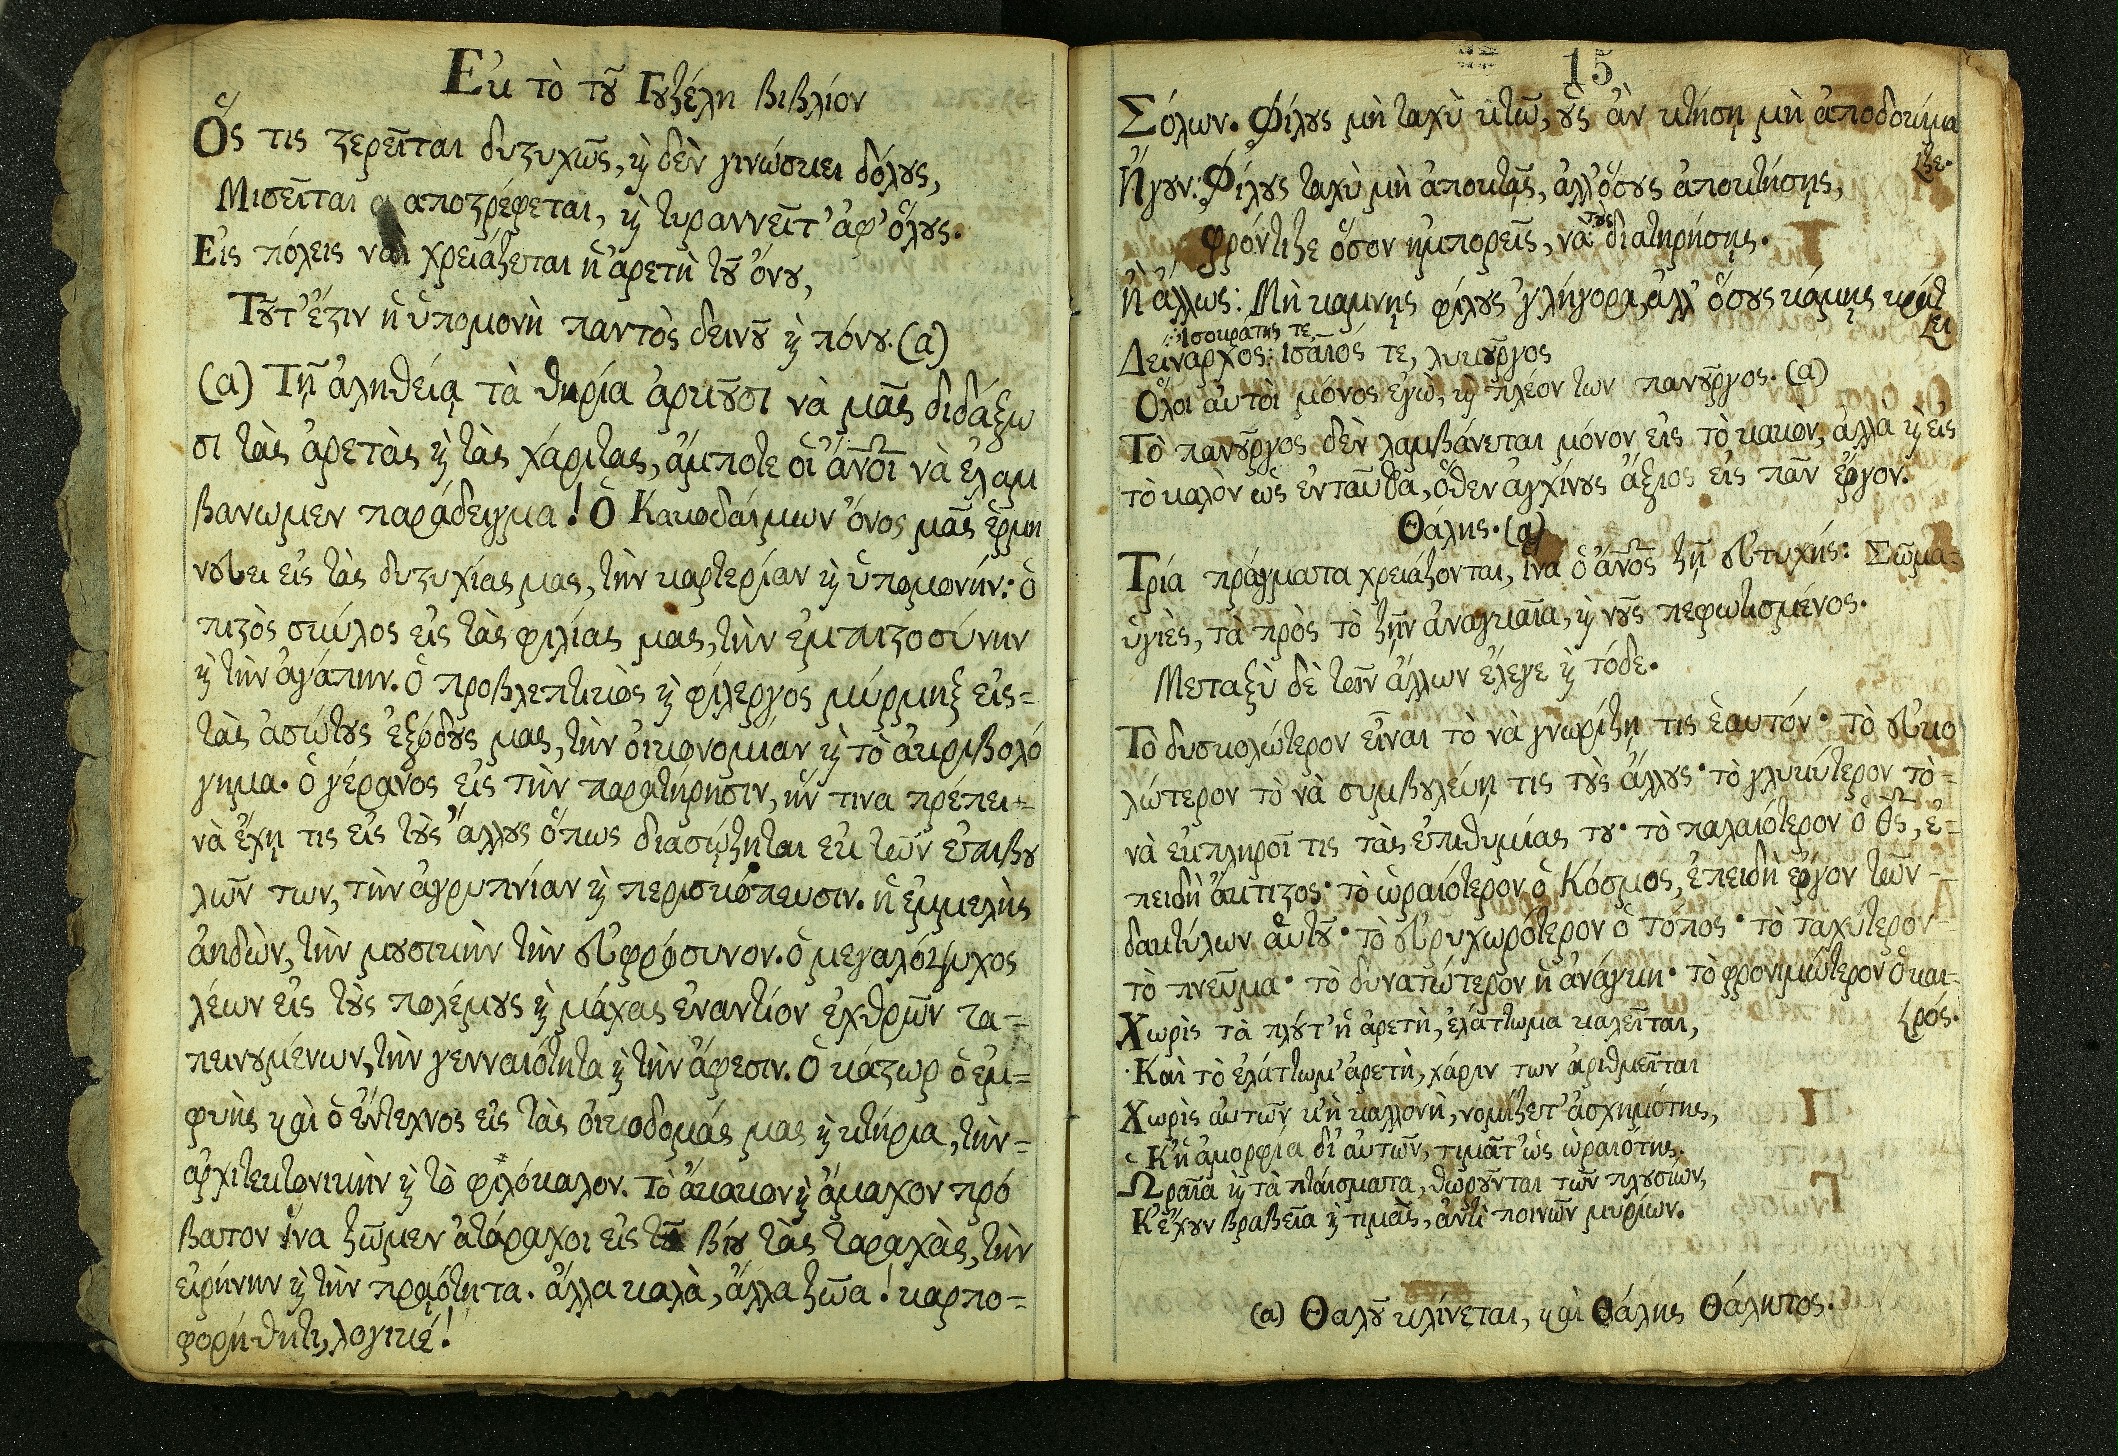 Ἐκ τὸ τοῦ Γουζέλη βιβλίον
Ὅς τις στερεῖται δυστυχῶς, καὶ δὲν γινώσκει δόλους,
Μισεῖται αποστρέφεται, καὶ τυραννεῖτ' ἀφ' ὅλους.
Εἰς πόλεις ναὶ χρειάζεται ἡ ἀρετὴ τοῦ ὄνου,
Τοῦτ' ἔστιν ἡ ὑπομονὴ παντὸς δεινοῦ καὶ πόνου. (α)
(α) Τῇ ἀληθείᾳ τὰ θηρία ἀρκοῦσι νὰ μᾶς διδάξω
σι τὰς ἀρετὰς καὶ τὰς χάριτας, ἄμποτε οἱ ἄνοι νὰ ἐλαμ
βανωμεν παράδειγμα! Ὁ Κακοδαίμων ὄνος μᾶς ἑρμη
νεύει εἰς τὰς δυστυχίας μας, τὴν καρτερίαν καὶ ὑπομονήν: ὁ
πιστὸς σκύλος εἰς τὰς φιλίας μας, τὴν ἐμπιστοσύνην
καὶ τὴν ἀγάπην. ὁ προβλεπτικὸς καὶ φίλεργος μύρμηξ εἰς=
τὰς ἀσώτους ἐξόδους μας, τὴν οἰκονομίαν καὶ τὸ ἀκριβολό
γημα. ὁ γέρανος εἰς τὴν παρατήρησιν, ἥν τινα πρέπει=
νὰ ἔχῃ τις εἰς τοὺς ἄλλους ὅπως διασώζηται ἐκ τῶν ἐπιβου
λῶν των, τὴν ἀγρυπνίαν καὶ περισκόπευσιν. ἡ ἐμμελὴς
ἀηδὼν, τὴν μουσικὴν τὴν εὐφρόσυνον. ὁ μεγαλόψυχος
λέων εἰς τοὺς πολέμους καὶ μάχας ἐναντίον ἐχθρῶν τα=
πεινουμένων, τὴν γενναιότητα καὶ τὴν ἄφεσιν. Ὁ κάστωρ ὁ ἐμ=
φυὴς καὶ ὁ ἔντεχνος εἰς τὰς οἰκοδομάς μας καὶ κτήρια, τὴν=
ἀρχιτεκτονικὴν καὶ τὸ φιλόκαλον. Τὸ ἄκακον καὶ ἄμαχον πρό
βατον ἵνα ζῶμεν ἀτάραχοι εἰς τοῦ βίου τὰς ταραχὰς, τὴν
εἰρήνην καὶ τὴν πραότητα. ἄλλα καλὰ, ἄλλα ζῶα! καρπο=
φορήθητι, λογικέ!
15
Σόλων. Φίλους μὴ ταχὺ κτῶ, οὓς ἂν κτήσῃ μὴ ἀποδοκίμα
ζε.
Ἤγουν: Φίλους ταχὺ μὴ ἀποκτᾷς, ἀλλ' ὅσους ἀποκτήσῃς,
Φρόντιζε ὅσον ἠμπορεῖς, νὰ τοὺς διατηρήσῃς.
ἢ ἄλλως: Μὴ κάμνῃς φίλους γλήγορα, ἀλλ' ὅσους κάμῃς κράτ
ει
Ἰσοκράτης τε,
Δείναρχος: Ἰσαῖός τε, λυκοῦργος
Ὅλοι αὐτοὶ μόνος ἐγὼ, καὶ πλέον των πανοῦργος. (α)
Τὸ πανοῦργος δὲν λαμβάνεται μόνον εἰς τὸ κακὸν, ἀλλὰ καὶ εἰς
τὸ καλὸν ὡς ἐνταῦθα, ὅθεν ἀγχίνους ἄξιος εἰς πᾶν ἔργον.
Θάλης. (α)
Τρία πράγματα χρειάζονται, ἵνα ὁ ἄνος ζῇ εὐτυχής: Σῶμα=
ὑγιὲς, τὰ πρὸς τὸ ζῆν ἀναγκαῖα, καὶ νοῦς πεφωτισμένος.
Μεταξὺ δὲ τῶν ἄλλων ἔλεγε καὶ τόδε.
Τὸ δυσκολώτερον εἶναι τὸ νὰ γνωρίζῃ τις ἑαυτόν· τὸ εὐκο
λώτερον τὸ νὰ συμβουλεύῃ τις τοὺς ἄλλους· τὸ γλυκύτερον τὸ=
νὰ ἐκπληροῖ τις τὰς ἐπιθυμίας του· τὸ παλαιότερον ὁ Θς, ἐ=
πειδὴ ἄκτιστος· τὸ ὡραιότερον ὁ Κόσμος, ἐπειδὴ ἔργον τῶν=
δακτύλων αὑτοῦ· τὸ εὐρυχωρότερον ὁ τόπος· τὸ ταχύτερον=
τὸ πνεῦμα· τὸ δυνατώτερον ἡ ἀνάγκη· τὸ φρονιμώτερον ὁ και=
ρός.
Χωρὶς τὰ πλούτ' ἡ ἀρετὴ, ἐλάττωμα καλεῖται,
Καὶ τὸ ἐλάττωμ' ἀρετὴ, χάριν των ἀριθμεῖται
Χωρὶς αὐτῶν κ' ἡ καλλονὴ, νομίζετ' ἀσχημότης,
Κ' ἡ ἀμορφία δι' αὐτῶν, τιμᾶτ' ὡς ὡραιότης.
Ὡραῖα καὶ τὰ πταίσματα, θωροῦνται τῶν πλουσίων,
Κ' ἔχουν βραβεῖα καὶ τιμὰς, ἀντὶ ποινῶν μυρίων.
(α) Θαλοῦ κλίνεται, καὶ Θάλης Θάλητος.